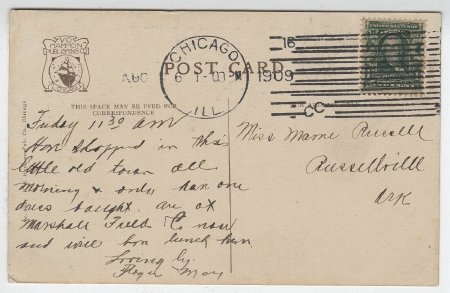 V.O.
HAMMON
PUBLISHING
CHICAGO
CHICAGO,
ILL
AUG
6 1-00 M
1909
16
CC
POST CARD
THIS SPACE MAY BE USED FOR
CORRESPONDENCE
Friday 11 30 am
Have shopped in this
little old town all
morning & only han one
dress bought are at
Marshall Field Co now
and will have lunch
Loving by
May
Miss Mame Russell
Russellville
Ark